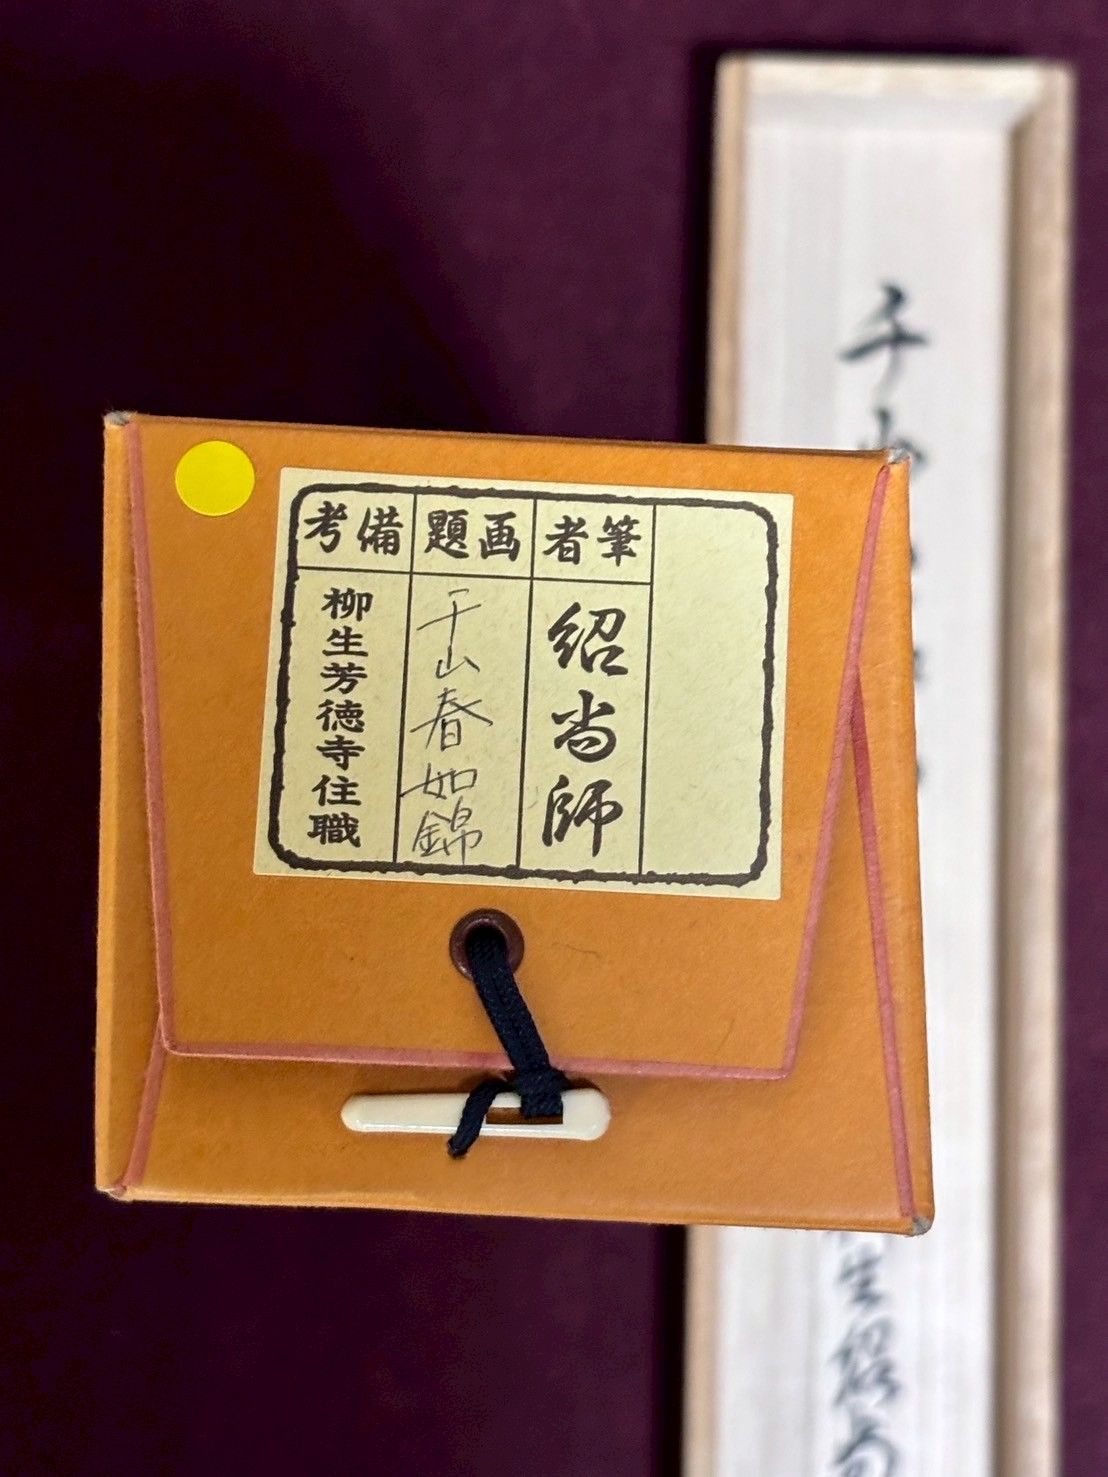 筆者
紹尚師
画題
千山春如錦
備考
柳生芳徳寺住職
千山
生紹尚